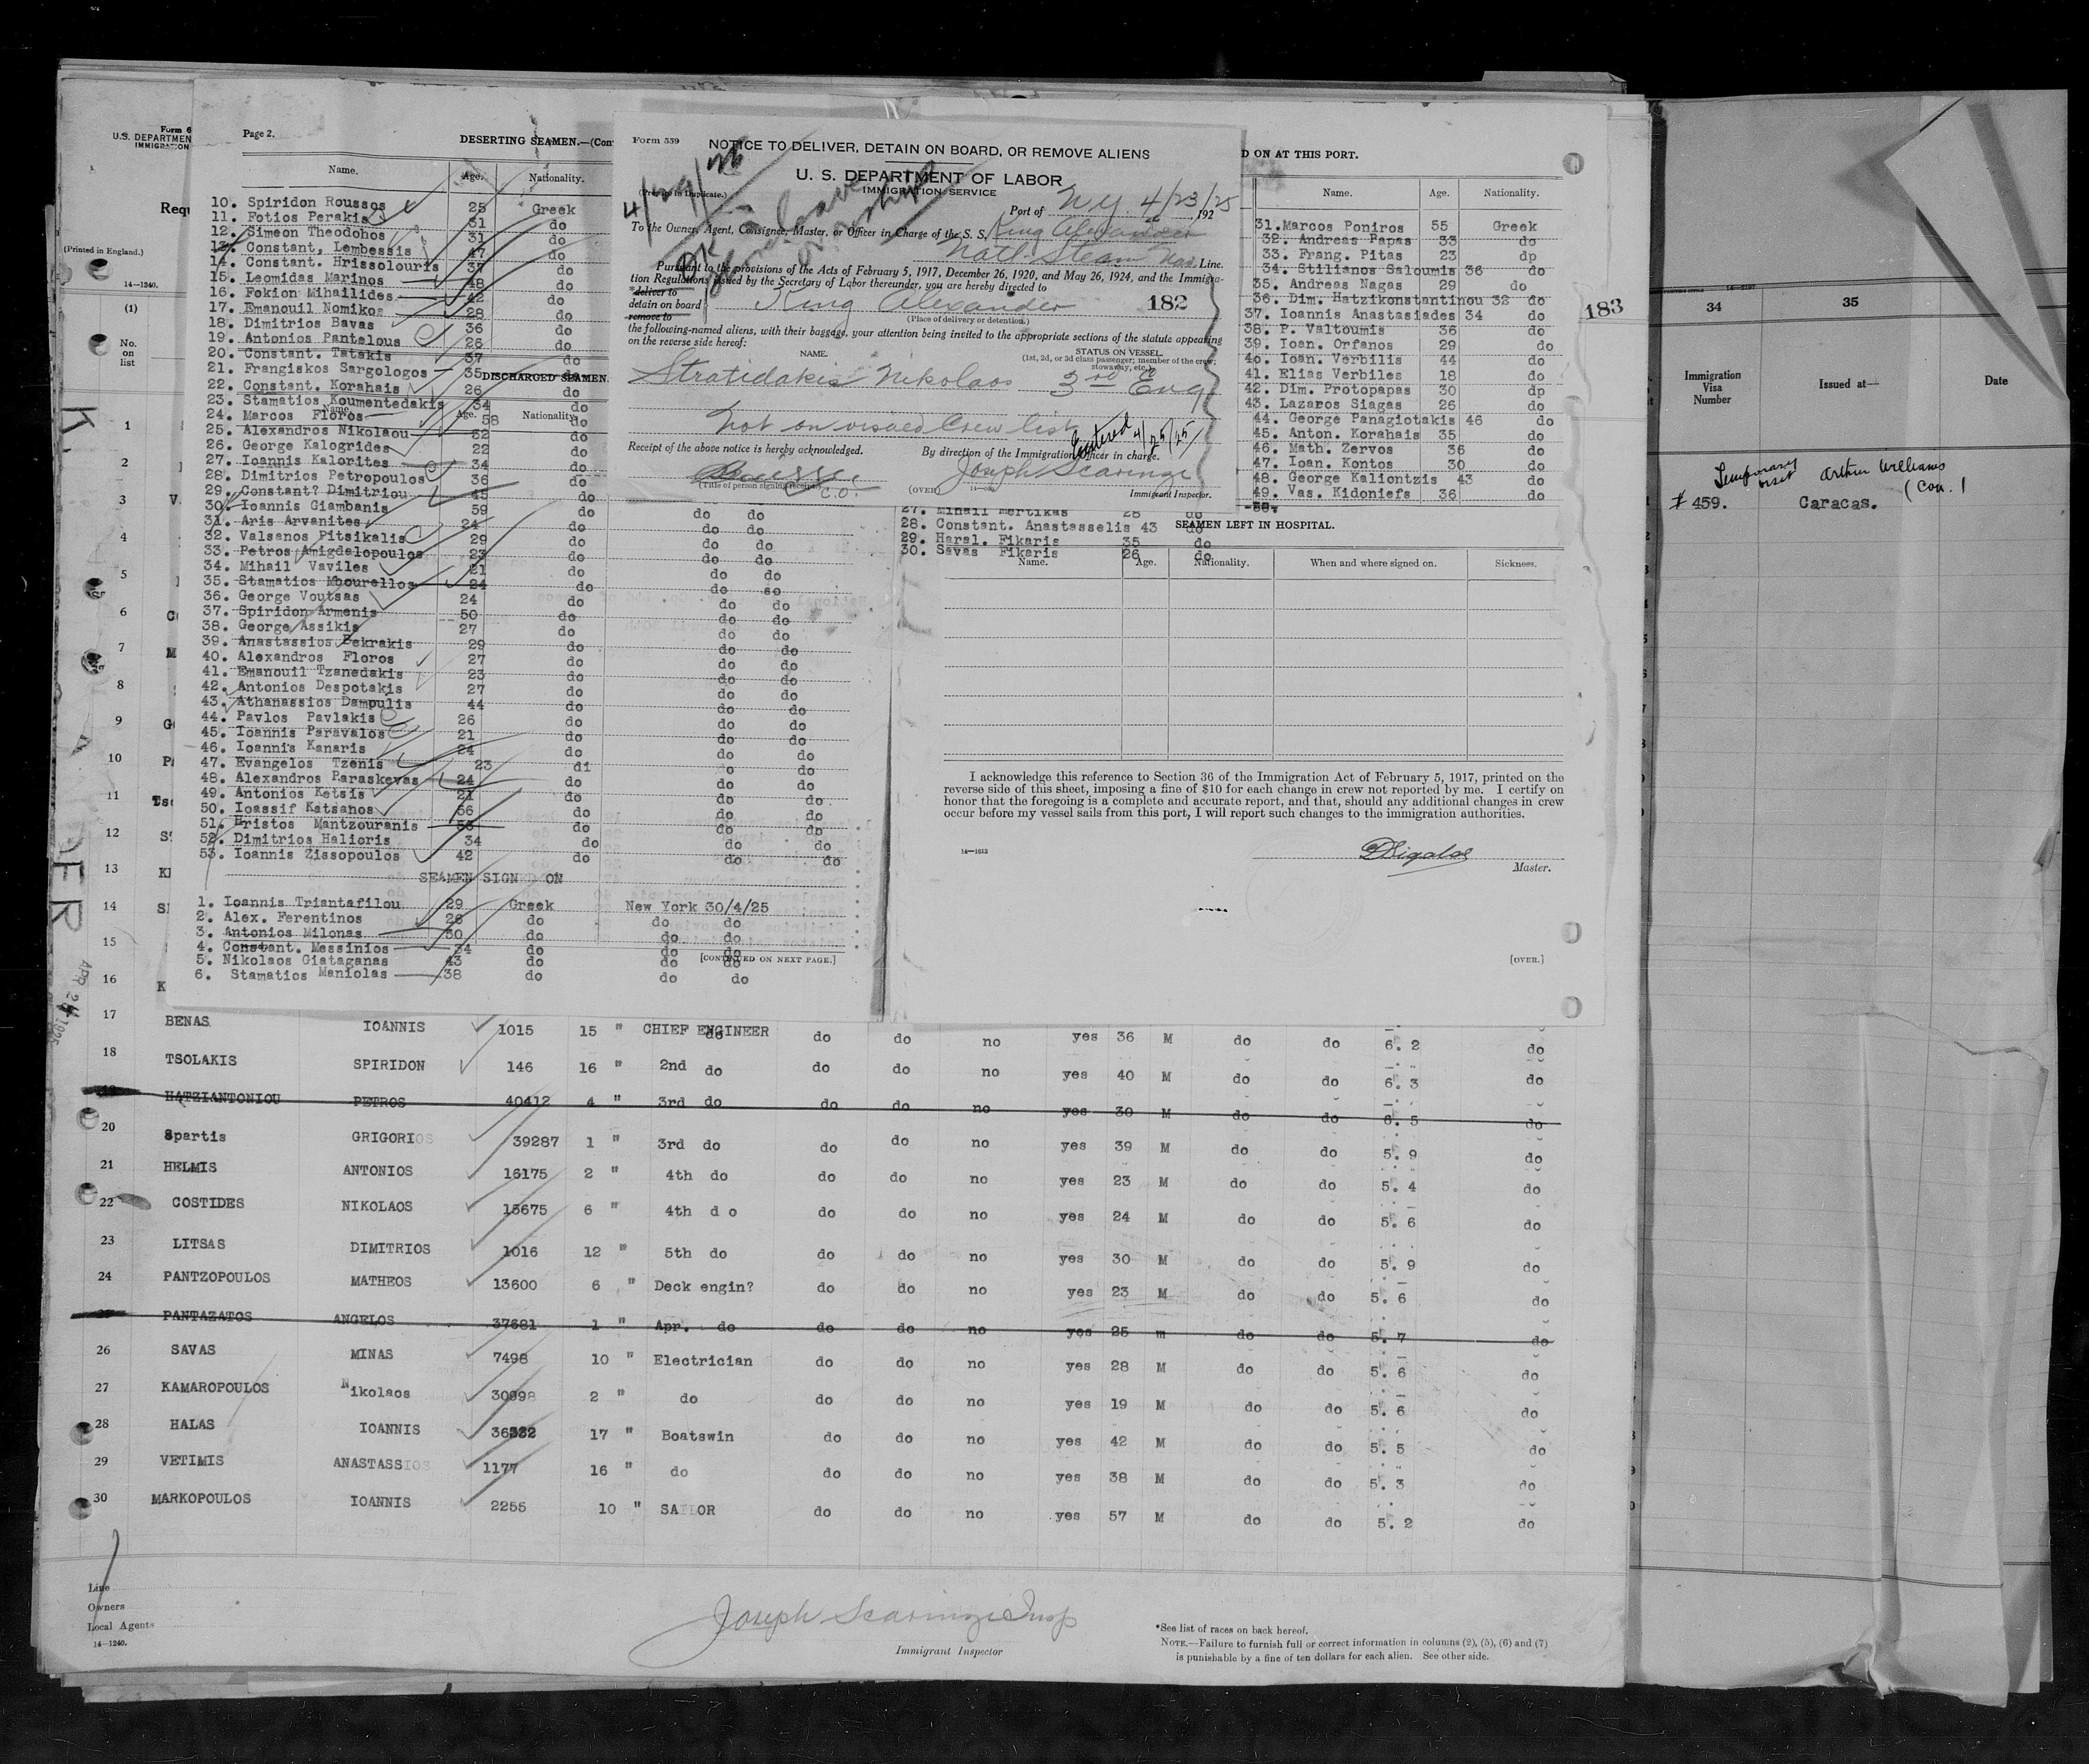 Form 6
U.S. DEPARTMEN
IMMIGRATION
Requ
(Printed in England.)
14—1240.
(1)
No.
on
list
1
2
3
4
5
6
7
8
9
10
11
12
13
14
15
16
Page 2.
DESERTING SEAMEN.—(Con
Name. Age. Nationality.
10. Spiridon Roussos 25 Greek
11. Fotios Perakis 31 do
12. Simeon Theodohos 31 do
13. Constant. Lembessis 47 do
14. Constant. Hrissolouris 37 do
15. Leomidas Marinos 48 do
16. Fokion Mihailides 42 do
17. Emanouil Nomikos 28 do
18. Dimitrios Bavas 36 do
19. Antonios Pantelous 26 do
20. Constant. Tatakis 37 do
21. Frangiskos Sargologos 35 do
DISCHARGED SEAMEN.
22. Constant. Korahais 26 do
23. Stamatios Koumentedakis 34 do
Name. Age. Nationality
24. Marcos Floros 58 do
25. Alexandros Nikolaou 32 do
26. George Kalogrides 22 do
27. Ioannis Kalorites 34 do
28. Dimitrios Petropoulos 36 do
29. Constant? Dimitriou 45 do
30. Ioannis Giambanis 59 do do do
31. Aris Arvanites 24 do do do
32. Valsanos Pitsikalis 29 do do do
33. Petros Amigdalopoulos 23 do do do
34. Mihail Vaviles 21 do do do
35. Stamatios Mbourellos 24 do do so
36. George Voutsas 24 do do do
37. Spiridon Armenis 50 do do do
38. George Assikis 27 do do do
39. Anastassios Bekrakis 29 do do do
40. Alexandros Floros 27 do do do
41. Emanouil Tzanedakis 23 do do do
42. Antonios Despotakis 27 do do do
43. Athanassios Dampulis 44 do do do
44. Pavlos Pavlakis 26 do do do
45. Ioannis Paravalos 21 do do do
46. Ioannis Kanaris 24 do do do
47. Evangelos Tzenis 23 di do do
48. Alexandros Paraskevas 24 do do do
49. Antonios Ketsis 21 do do do
50. Ioassif Katsanos 56 do do do
51. Hristos Mantzouranis 53 do do do
52. Dimitrios Halioris 34 do do do
53. Ioannis Zissopoulos 42 do do do
SEAMEN SIGN ON
1. Ioannis Triantafilou 29 Greek New York 30/4/25
2. Alex. Ferentinos 26 do do do
3. Antonios Milonas 30 do do do
4. Constant. Messinios 34 do do do
5. Nikolaos Giataganas 43 do do do
[CONTINUED ON NEXT PAGE.]
6. Stamatios Maniolas 38 do do do
Form 559
NOTICE TO DELIVER, DETAIN ON BOARD, OR REMOVE ALIENS
U. S. DEPARTMENT OF LABOR
IMMIGRATION SERVICE
(Prepare in Duplicate.)
Port of N.Y. 4/23/25, 192
To the Owner, Agent, Consignee, Master, or Officer in Charge of the S. S. King Alexander
Natl Steam Nav. Line.
Pursuant to the provisions of the Acts of February 5, 1917, December 26, 1920, and May 26, 1924, and the Immigra-
tion Regulations issued by the Secretary of Labor thereunder, you are hereby directed to
*deliver to
detain on board King Alexander 182
remove to
(Place of delivery or detention.)
the following-named aliens, with their baggage, your attention being invited to the appropriate sections of the statute appearing
on the reverse side hereof:
NAME. STATUS ON VESSEL.
(1st, 2d, or 3d class passenger; member of the crew;
stowaway, etc.)
Stratidakis Nikolaos 3rd Eng
Not on visaed Crew list
Entered 4/25/25
Receipt of the above notice is hereby acknowledged. By direction of the Immigration Officer in charge.
Joseph Scaringi
(Title of person signing receipt.)
C.O. (OVER) Immigrant Inspector.
D ON AT THIS PORT.
Name. Age. Nationality.
31. Marcos Poniros 55 Greek
32. Andreas Papas 33 do
33. Frang. Pitas 23 dp
34. Stilianos Saloumis 36 do
35. Andreas Nagas 29 do
36. Dim. Hatzikonstantinou 32 do
37. Ioannis Anastasiades 34 do
38. P. Valtoumis 36 do
39. Ioan. Orfanos 29 do
40. Ioan. Verbilis 44 do
41. Elias Verbiles 18 do
42. Dim. Protopapas 30 dp
43. Lazaros Siagas 26 do
44. George Panagiotakis 46 do
45. Anton. Korahais 35 do
46. Math. Zervos 36 do
47. Ioan. Kontos 30 do
48. George Kaliontzis 43 do
49. Vas. Kidoniefs 36 do
183
27. Mihail Mertikas 28 do
28. Constant. Anastasselis 43 do
29. Haral. Fikaris 35 do
30. Savas Fikaris 26 do
SEAMEN LEFT IN HOSPITAL.
Name. Age. Nationality. When and where signed on. Sickness.
I acknowledge this reference to Section 36 of the Immigration Act of February 5, 1917, printed on the
reverse side of this sheet, imposing a fine of $10 for each change in crew not reported by me. I certify on
honor that the foregoing is a complete and accurate report, and that, should any additional changes in crew
occur before my vessel sails from this port, I will report such changes to the immigration authorities.
14—1613
Master.
[OVER.]
17 BENAS IOANNIS 1015 15 " CHIEF ENGINEER do do do no yes 36 M do do 6. 2 do
18 TSOLAKIS SPIRIDON 146 16 " 2nd do do do no yes 40 M do do 6. 3 do
19 HATZIANTONIOU PETROS 40412 4 " 3rd do do do no yes 30 M do do 6. 5 do
20 Spartis GRIGORIOS 39287 1 " 3rd do do do no yes 39 M do do 5. 9 do
21 HELMIS ANTONIOS 16175 2 " 4th do do do no yes 23 M do do 5. 4 do
22 COSTIDES NIKOLAOS 15675 6 " 4th d o do do no yes 24 M do do 5. 6 do
23 LITSAS DIMITRIOS 1016 12 " 5th do do do no yes 30 M do do 5. 9 do
24 PANTZOPOULOS MATHEOS 13600 6 " Deck engin? do do no yes 23 M do do 5. 6 do
25 PANTAZATOS ANGELOS 37681 1 " Apr. do do do no yes 25 m do do 5. 7 do
26 SAVAS MINAS 7498 10 " Electrician do do no yes 28 M do do 5. 6 do
27 KAMAROPOULOS Nikolaos 30998 2 " do do do no yes 19 M do do 5. 6 do
28 HALAS IOANNIS 17 " Boatswin do do no yes 42 M do do 5. 5 do
29 VETIMIS ANASTASSIOS 1177 16 " do do do no yes 38 M do do 5. 3 do
30 MARKOPOULOS IOANNIS 2255 10 " SAILOR do do no yes 57 M do do 5. 2 do
Line
Owners
Local Agents
14—1240.
Joseph Scaringi Insp
Immigrant Inspector
*See list of races on back hereof.
NOTE.—Failure to furnish full or correct information in columns (2), (5), (6) and (7)
is punishable by a fine of ten dollars for each alien. See other side.
34 35
Immigration
Visa
Number
Issued at—
Date
Temporary visit Arthur Williams
# 459. Caracas. (Con.)